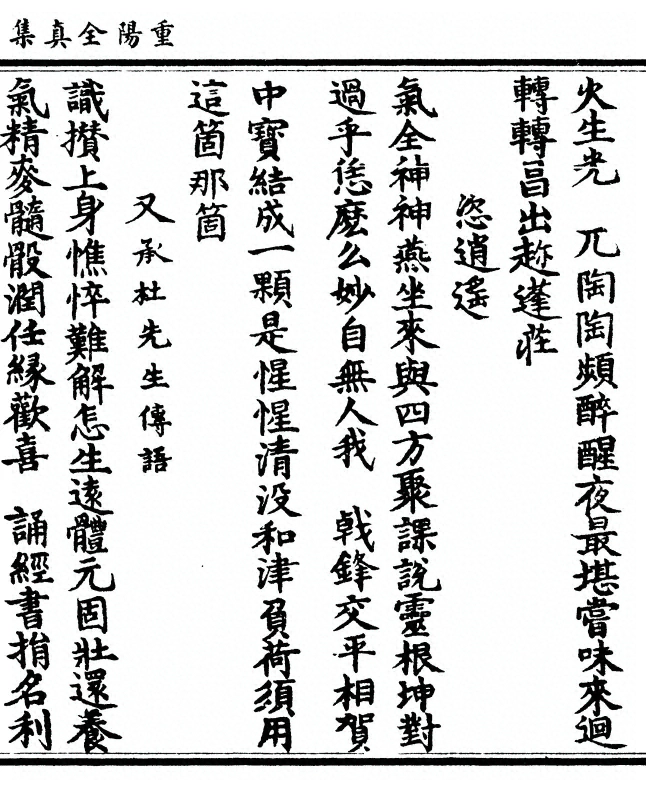 重陽全真集
火生光　兀陶陶頻醉醒夜最堪嘗味來迴
轉轉昌出趂蓬莊
恣逍遙
氣全神神燕坐來與四方聚課說靈根坤對
過乎恁麽么妙自無人我　戟鋒交平相賀
中寶結成一顆是惺惺清没和津負荷須用
這箇那箇
又承杜先生傳語
識攅上身憔悴難解怎生遠體元固壯還養
氣精麥髓骰潤任緣歡喜　誦經書捐名利